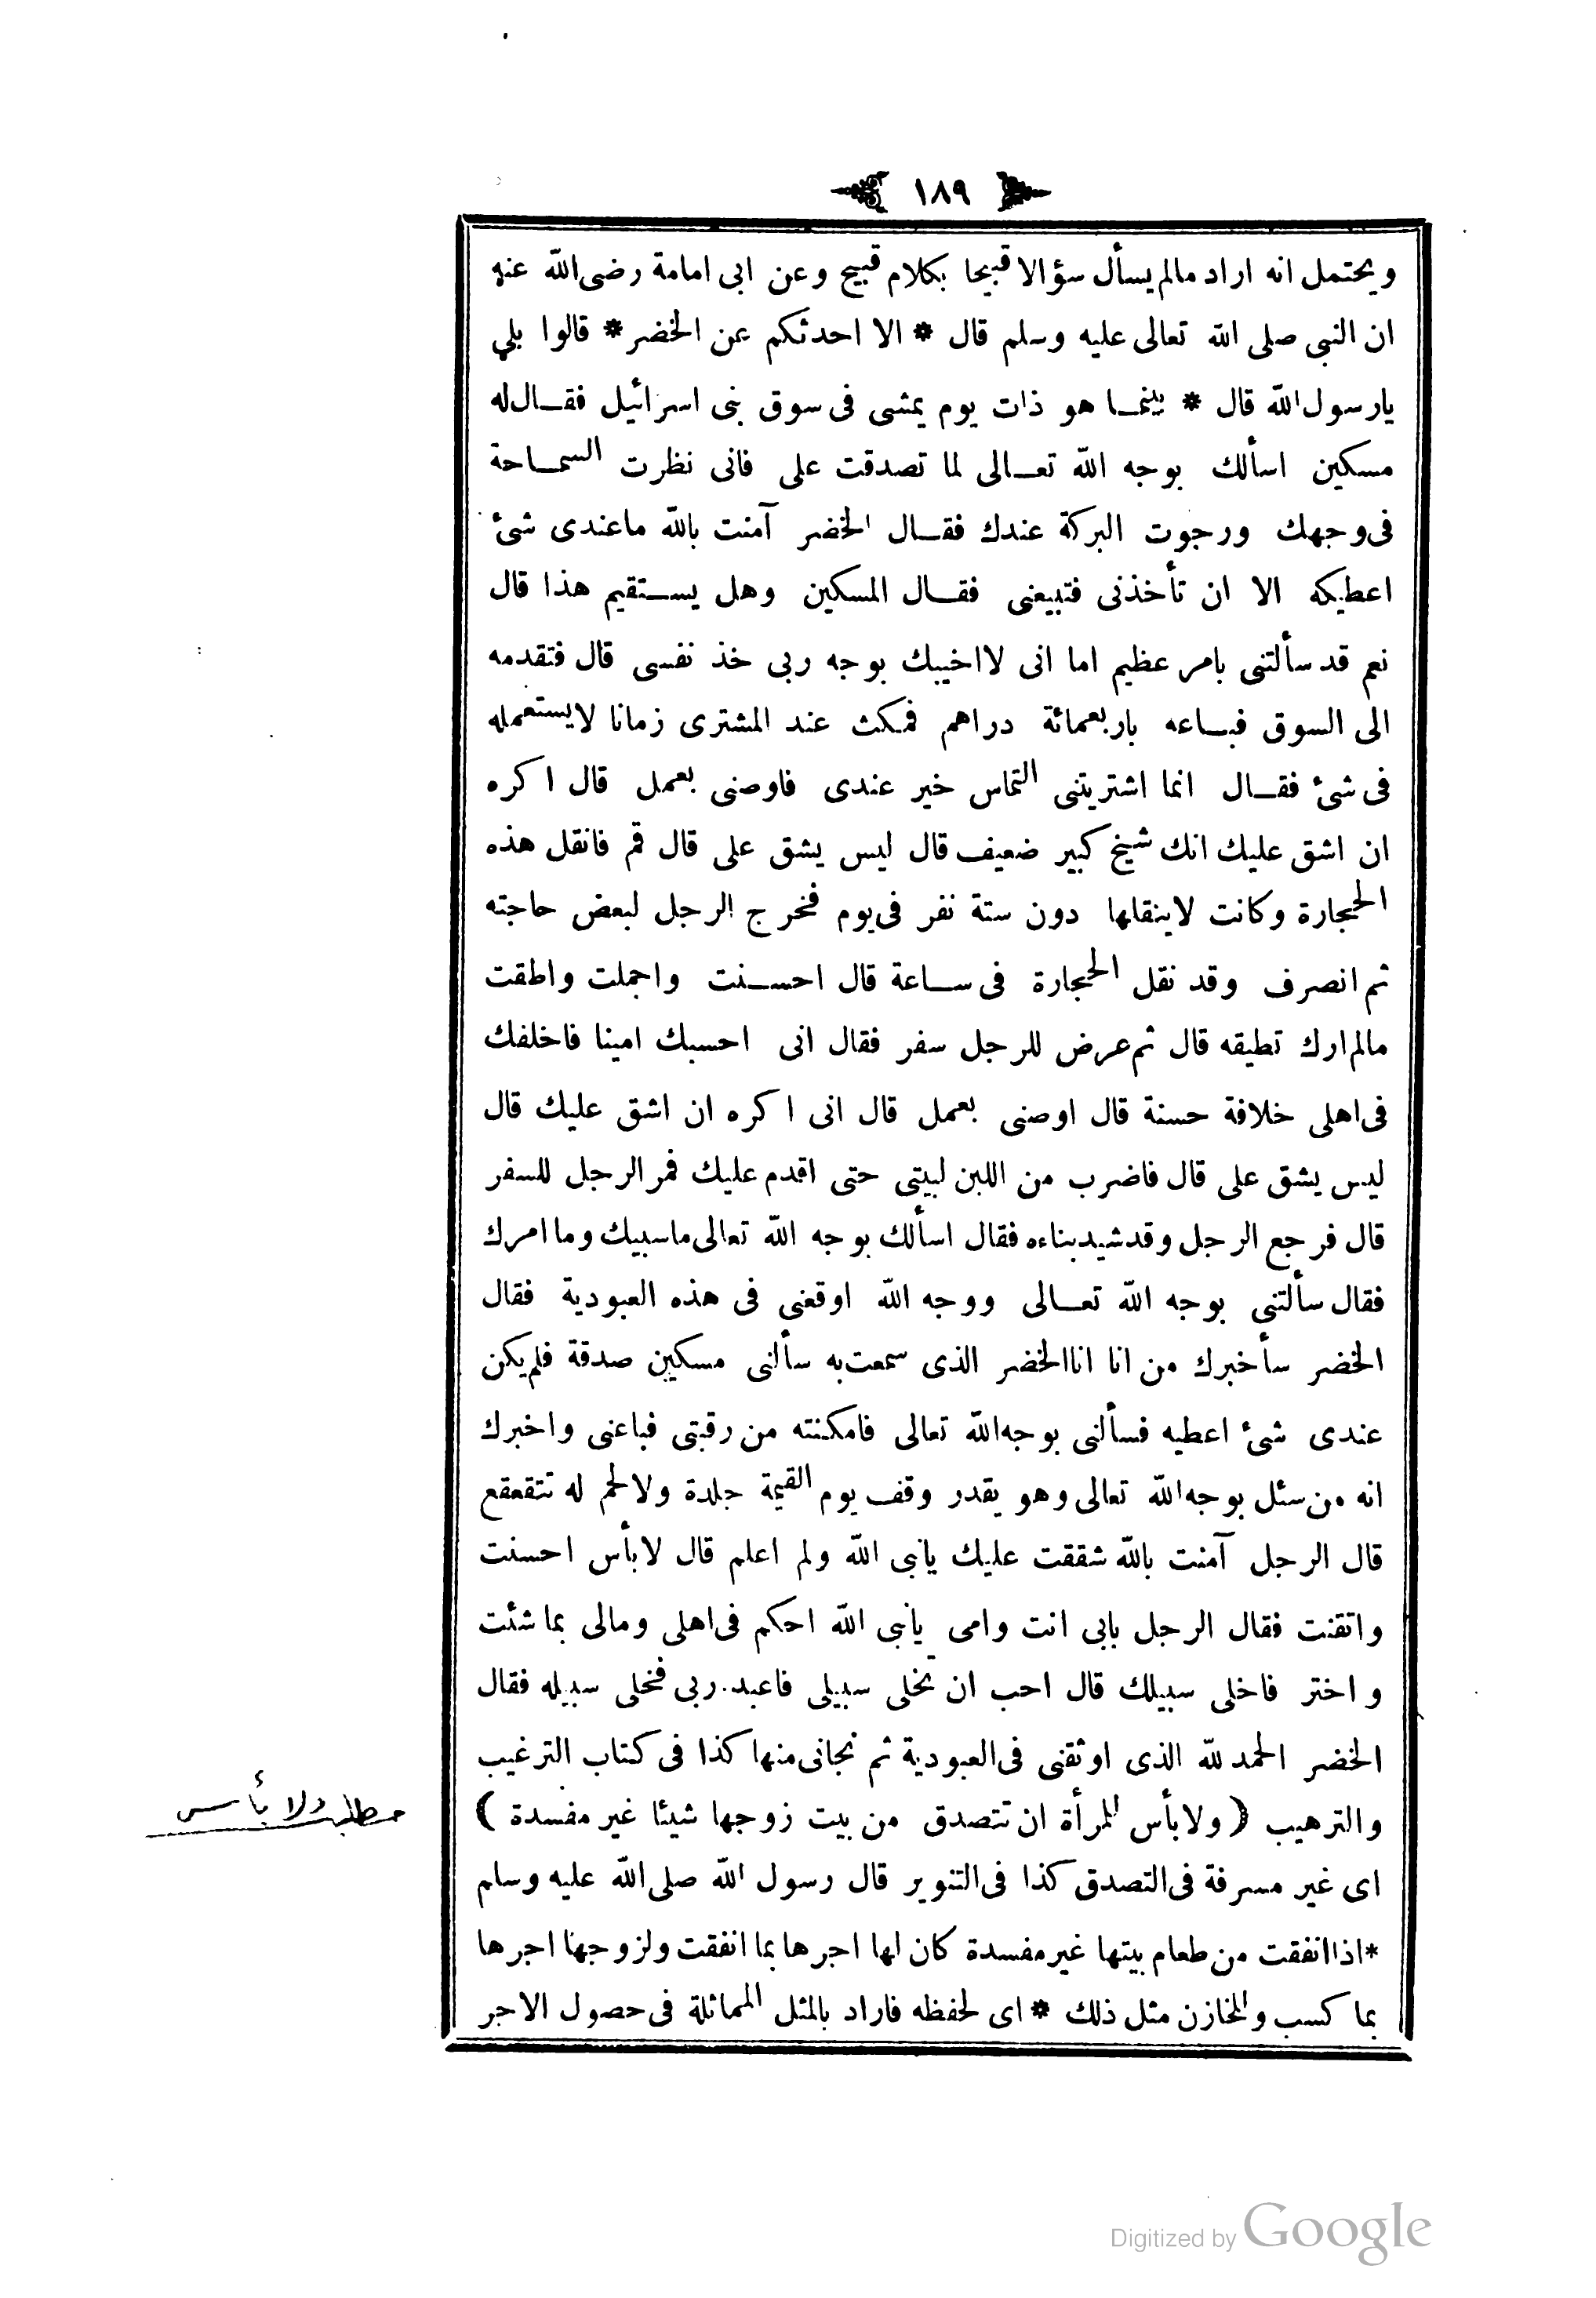 ١٨٩
ويحتمل انه اراد مالم يسأل سؤالا قبيحا بكلام قبيح وعن ابى امامة رضى الله عنه
ان النبى صلى الله تعالى عليه وسلم قال * الا احدثكم عن الخضر * قالوا بلى
يارسول الله قال * بينما هو ذات يوم يمشى فى سوق بنى اسرائيل فقال له
مسكين اسألك بوجه الله تعالى لما تصدقت على فانى نظرت السماحة
فى وجهك ورجوت البركة عندك فقال الخضر آمنت بالله ماعندى شئ
اعطيكه الا ان تأخذنى فتبيعنى فقال المسكين وهل يستقيم هذا قال
نعم قد سألتنى بامر عظيم اما انى لااخيبك بوجه ربى خذ نفسى قال فتقدمه
الى السوق فباعه باربعمائة دراهم فمكث عند المشترى زمانا لايستعمله
فى شئ فقال انما اشتريتنى التماس خير عندى فاوصنى بعمل قال اكره
ان اشق عليك انك شيخ كبير ضعيف قال ليس يشق على قال قم فانقل هذه
الحجارة وكانت لاينقلها دون ستة نفر فى يوم فخرج الرجل لبعض حاجته
ثم انصرف وقد نقل الحجارة فى ساعة قال احسنت واجملت واطقت
مالم ارك تطيقه قال ثم عرض للرجل سفر فقال انى احسبك امينا فاخلفك
فى اهلى خلافة حسنة قال اوصنى بعمل قال انى اكره ان اشق عليك قال
ليس يشق على قال فاضرب من اللبن لبيتى حتى اقدم عليك فمر الرجل للسفر
قال فرجع الرجل وقد شيد بناءه فقال اسألك بوجه الله تعالى ماسبيك وما امرك
فقال سألتنى بوجه الله تعالى ووجه الله اوقعنى فى هذه العبودية فقال
الخضر سأخبرك من انا انا الخضر الذى سمعت به سألنى مسكين صدقة فلم يكن
عندى شئ اعطيه فسألنى بوجه الله تعالى فامكنته من رقبتى فباعنى واخبرك
انه من سئل بوجه الله تعالى وهو يقدر وقف يوم القيمة جلدة ولالحم له تتقعقع
قال الرجل آمنت بالله شققت عليك يانبى الله ولم اعلم قال لابأس احسنت
واتقنت فقال الرجل بابى انت وامى يانبى الله احكم فى اهلى ومالى بما شئت
واختر فاخلى سبيلك قال احب ان تخلى سبيلى فاعبد ربى فخلى سبيله فقال
الخضر الحمد لله الذى اوثقنى فى العبودية ثم نجانى منها كذا فى كتاب الترغيب
والترهيب ( ولابأس للمرأة ان تتصدق من بيت زوجها شيئا غير مفسدة )
مطلب ولا بأس
اى غير مسرفة فى التصدق كذا فى التنوير قال رسول الله صلى الله عليه وسلم
* اذا انفقت من طعام بيتها غير مفسدة كان لها اجرها بما انفقت ولزوجها اجرها
بما كسب وللخازن مثل ذلك * اى لحفظه فاراد بالمثل المماثلة فى حصول الاجر
Digitized by Google